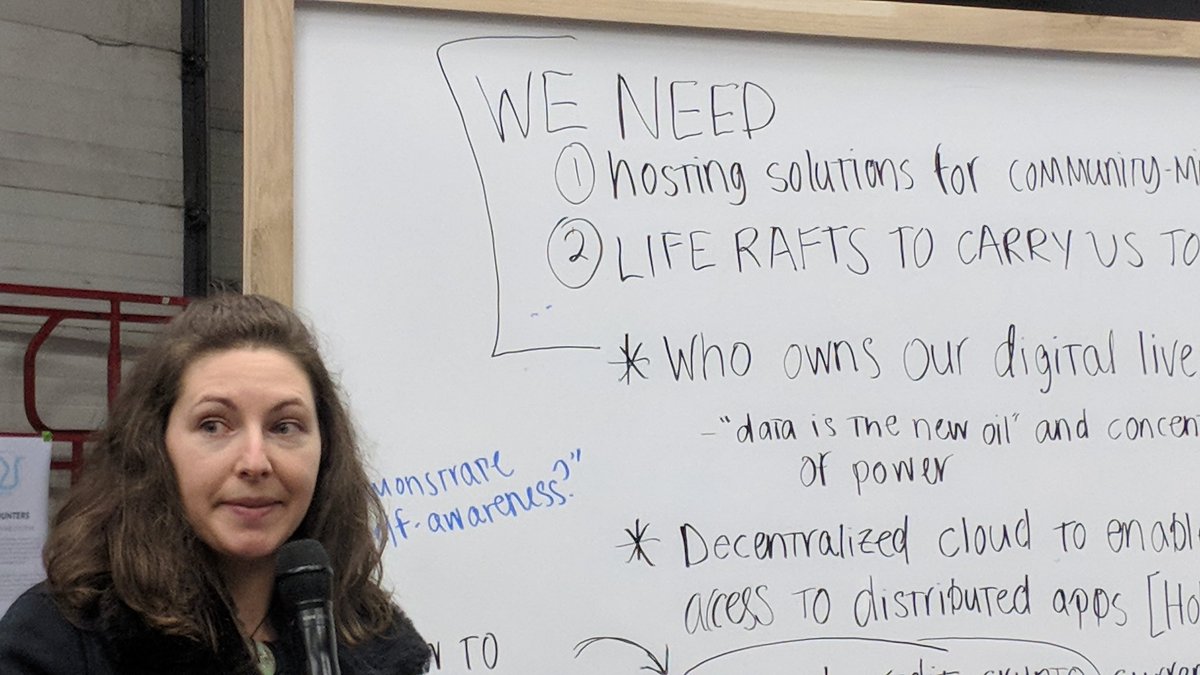 WE NEED
① hosting solutions for COMMUNITY-MI
② LIFE RAFTS TO CARRY US TO
* Who owns our digital live
- "data is the new oil" and concen
of power
monstrate
lf-awareness?"
* Decentralized cloud to enabl
access to distributed apps [Ho
UNTERS
N TO
crypto